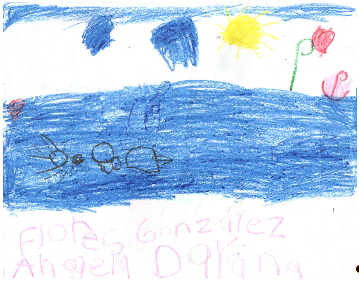 Flores González
Angela Dayana